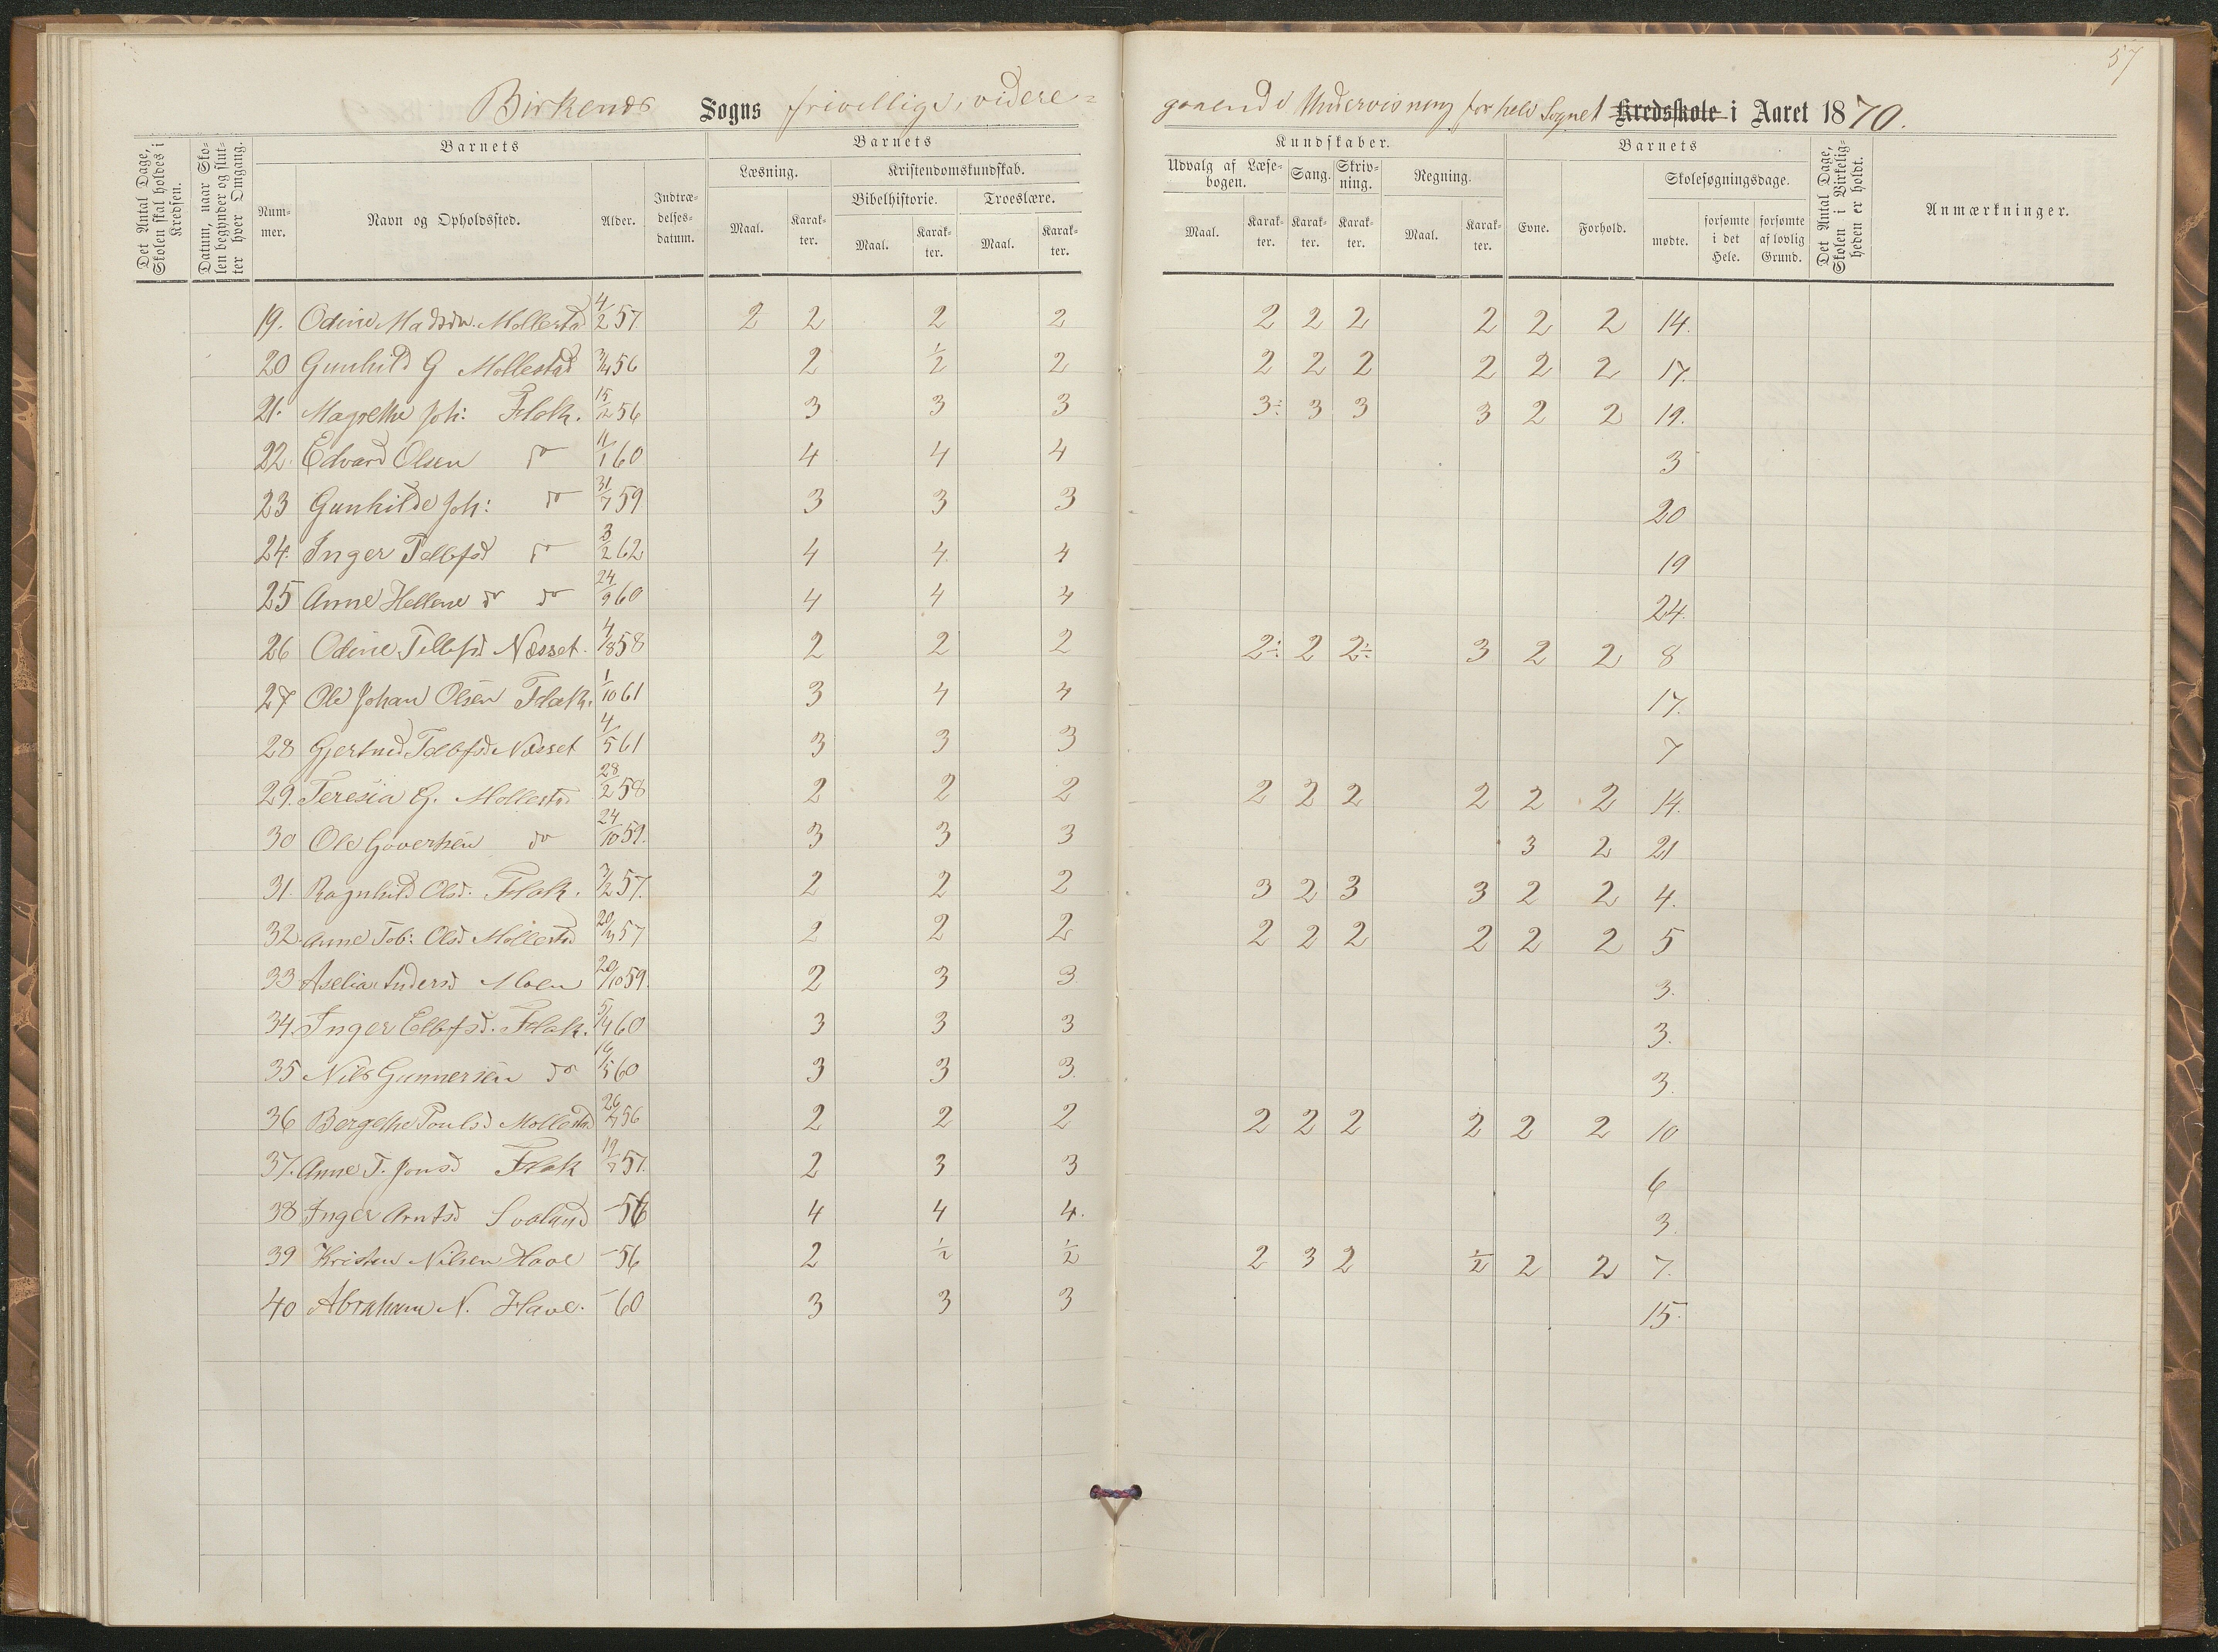 57
Birkenæs Sogns frivillige, videre=
gaaende Undervisning for hele Sognet Kredsskole i Aaret 1870.
Det Antal Dage, Skolen skal holdes i Kredsen.
Datum, naar Skolen begynder og slutter hver Omgang.
Barnets Barnets Kundskaber. Barnets
Nummer. Navn og Opholdssted. Alder. Indtrædelsesdatum.
Læsning. Kristendomskundskab. Udvalg af Læsebogen. Sang. Skrivning. Regning. Evne. Forhold. Skolesøgningsdage.
Bibelhistorie. Troeslære.
Maal. Karakter. Maal. Karakter. Maal. Karakter. Maal. Karakter. Karakter. Karakter. Maal. Karakter. mødte. forsømte i det Hele. forsømte af lovlig Grund.
Det Antal Dage, Skolen i Virkeligheden er holdt.
Anmærkninger.
19. Odine Madsdn. Mollestad 4/2 57 2 2 2 2 2 2 2 2 2 2 14.
20 Gunhild G Mollestad 3/4 56 2 1/2 2 2 2 2 2 2 2 17.
21. Magrethe Joh: Flak. 15/12 56 3 3 3 3÷ 3 3 3 2 2 19.
22. Edvard Olsen do 11/1 60 4 4 4 3
23 Gunhilde Joh: do 31/7 59 3 3 3 20
24. Inger Tellefsd do 3/2 62 4 4 4 19
25 Anne Hellene do do 24/9 60 4 4 4 24.
26 Odine Tellefsd Næsset. 4/8 58 2 2 2 2÷ 2 2÷ 3 2 2 8
27 Ole Johan Olsen Flak. 1/10 61 3 4 4 17.
28 Gjertrud Tellefsd Næsset 4/5 61 3 3 3 7
29. Teresia G. Mollestad 28/2 58 2 2 2 2 2 2 2 2 2 14.
30 Ole Govertsen do 24/10 59. 3 3 3 3 2 21
31. Ragnhild Olsd. Flak. 3/2 57. 2 2 2 3 2 3 3 2 2 4.
32 Anne Tob: Olsd Mollestad 20/3 57 2 2 2 2 2 2 2 2 2 5
33 Aselia Andersd Moen 20/10 59. 2 3 3 3.
34. Inger Ellefsd. Flak. 5/4 60 3 3 3 3.
35 Nils Gunnersen do 16/5 60 3 3 3. 3.
36 Bergethe Poulsd Mollestad 26/4 56 2 2 2 2 2 2 2 2 2 10
37. Anne T. Jonsd. Flak 12/7 57. 2 3 3 6
38 Inger Arntsd Svaland - 56 4 4 4. 3.
39 Kristen Nilsen Have - 56 2 1/2 1/2 2 3 2 1/2 2 2 7.
40 Abraham N. Have. - 60 3 3 3 15.